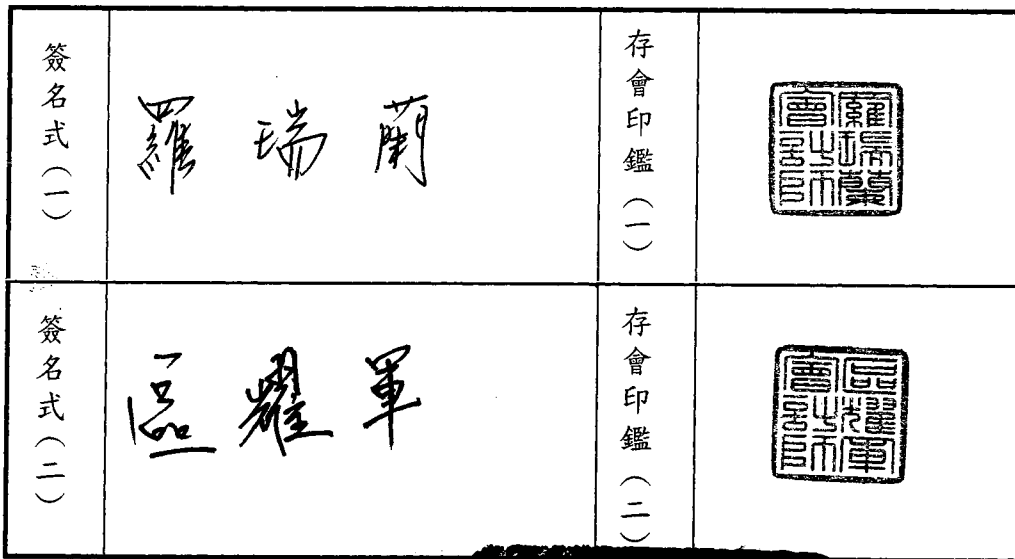 簽名式(一)
羅瑞蘭
存會印鑑(一)
羅瑞蘭會計師
簽名式(二)
區耀軍
存會印鑑(二)
區耀軍會計師